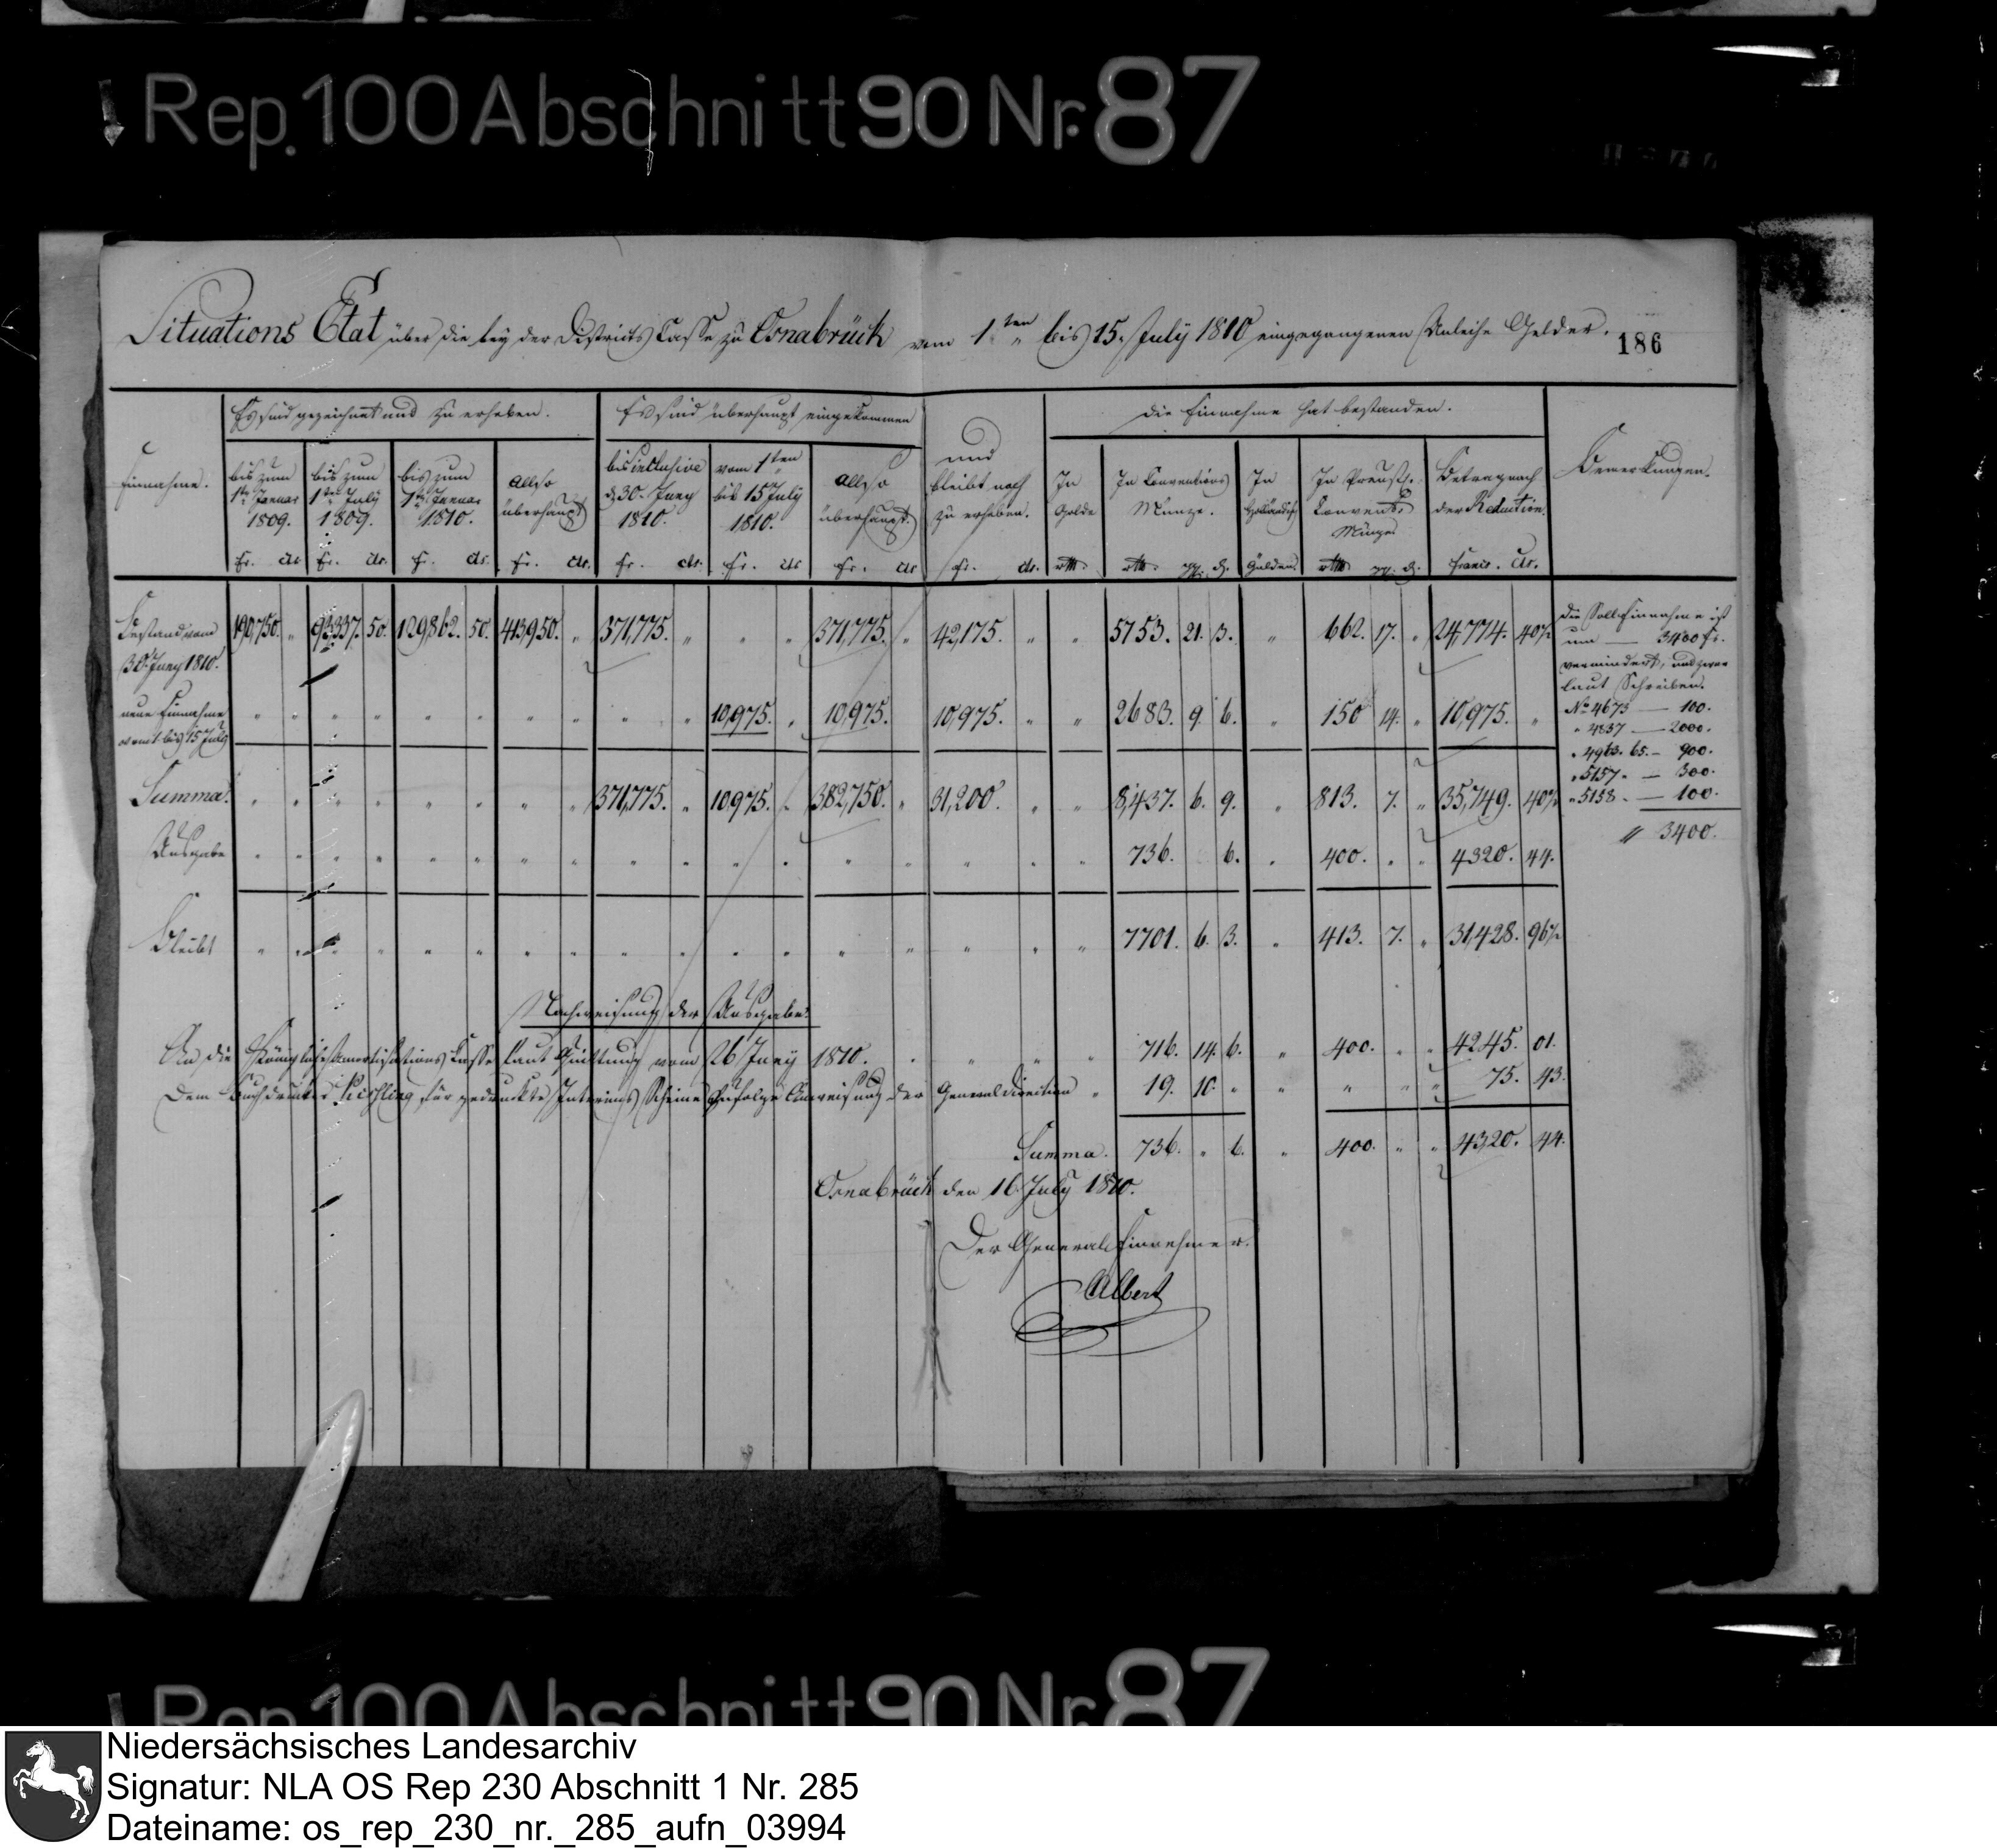 Rep. 100 Abschnitt 90 Nr. 87
Situations Etat über die bey der Districts Casse zu Osnabrück vom 1ten bis 15. July 1810 eingegangenen Anleihe Gelder.
186
Einnahme.
Es sind gezeichnet und zu erheben.
bis zum 1ten Januar 1809.
bis zum 1ten July 1809.
bis zum 1ten Januar 1810.
also überhaupt
fr. cts. fr. cts. fr. cts. fr. cts.
Es sind überhaupt eingekommen
bis inclusive d. 30. Juny 1810.
vom 1ten bis 15 July 1810.
also überhaupt.
fr. cts. fr. cts. fr. cts.
und bleibt noch zu erheben.
fr. cts.
Die Einnahme hat bestanden.
In Golde
In Conventions Münze.
In Holländisch Gulden.
In Preuss. Convent. Münze
Betrag nach der Reduction.
Franc. Cts.
Bemerkungen.
Bestand vom 30. Juny 1810. 190,750. " 93,337. 50. 129,862. 50. 413,950. " 371,775. " " " 371,775. " 42,175. " " 5753. 21. 3. " 662. 17. " 24,774. 40½
neue Einnahme vom 1 bis 15 July " " " " " " " " " " 10,975. " 10,975. 10,975. " " 2683. 9. 6. " 150 14. " 10,975. "
Summa. " " " " " " " " 371,775. " 10,975. " 382,750. " 31,200. " " 8,437. 6. 9. " 813. 7. " 35,749. 40½
Ausgabe " " " " " " " " " " " " " " " " " 736. 6. " 400. " " 4320. 44.
Bleibt " " " " " " " " " " " " " " " " " 7701. 6. 3. " 413. 7. " 31,428. 96½
Die Soll Einnahme ist
um — 3400 fr.
vermindert, und zwar
laut Schreiben.
No 4673 — 100.
" 4837 — 2000.
" 4963. 65. — 900.
" 5157. — 300.
" 5158. — 100.
" 3400.
Nachweisung der Ausgabe.
An die Königliche Amortisations Casse laut Quittung vom 26 Juny 1810. " " " " 716. 14. 6. " 400. " " 4245. 01.
Dem Buchdrucker Kißling für gedruckte Interims Scheine zufolge Anweisung der General direction " 19. 10. " " " " " 75. 43.
Summa. 736. " 6. " 400. " " 4320. 44.
Osnabrück den 16 July 1810.
Der General Einnehmer.
Albert
Rep. 100 Abschnitt 90 Nr. 87
Niedersächsisches Landesarchiv
Signatur: NLA OS Rep 230 Abschnitt 1 Nr. 285
Dateiname: os_rep_230_nr._285_aufn_03994